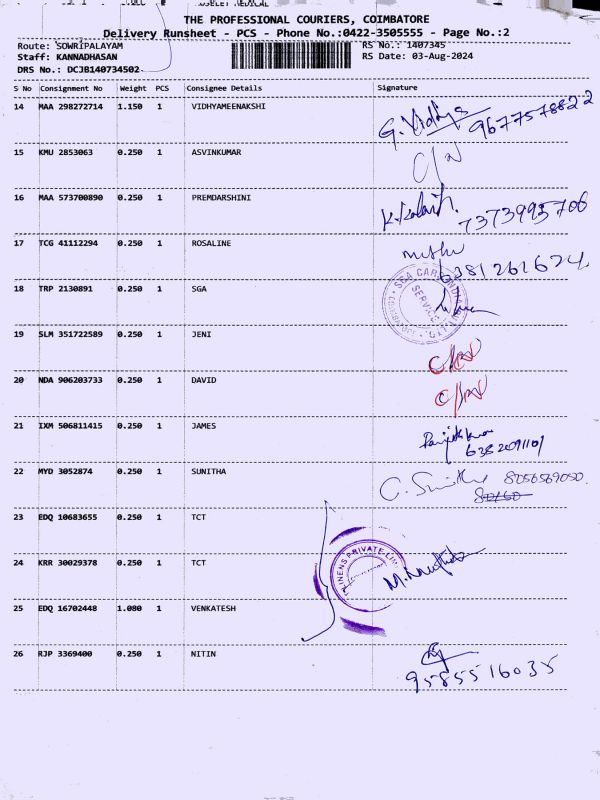 THE PROFESSIONAL COURIERS, COIMBATORE
Delivery Runsheet - PCS - Phone No.:0422-3505555 - Page No.:2
Route: SOWRIPALAYAM RS No.: 1407345
Staff: KANNADHASAN RS Date: 03-Aug-2024
DRS No.: DCJB140734502
S No Consignment No Weight PCS Consignee Details Signature
14 MAA 298272714 1.150 1 VIDHYAMEENAKSHI G. Vidhya 9677578822
15 KMU 2853063 0.250 1 ASVINKUMAR
16 MAA 573700890 0.250 1 PREMDARSHINI 7373995706
17 TCG 41112294 0.250 1 ROSALINE 6381261674
18 TRP 2130891 0.250 1 SGA SGA CARS INDIA SERVICE
19 SLM 351722589 0.250 1 JENI
20 NDA 906203733 0.250 1 DAVID
21 IXM 506811415 0.250 1 JAMES 6382091101
22 MYD 3052874 0.250 1 SUNITHA C. Sunitha 8056569050
23 EDQ 10683655 0.250 1 TCT
24 KRR 30029378 0.250 1 TCT LINENS PRIVATE LIM
25 EDQ 16702448 1.080 1 VENKATESH
26 RJP 3369400 0.250 1 NITIN 9585516035